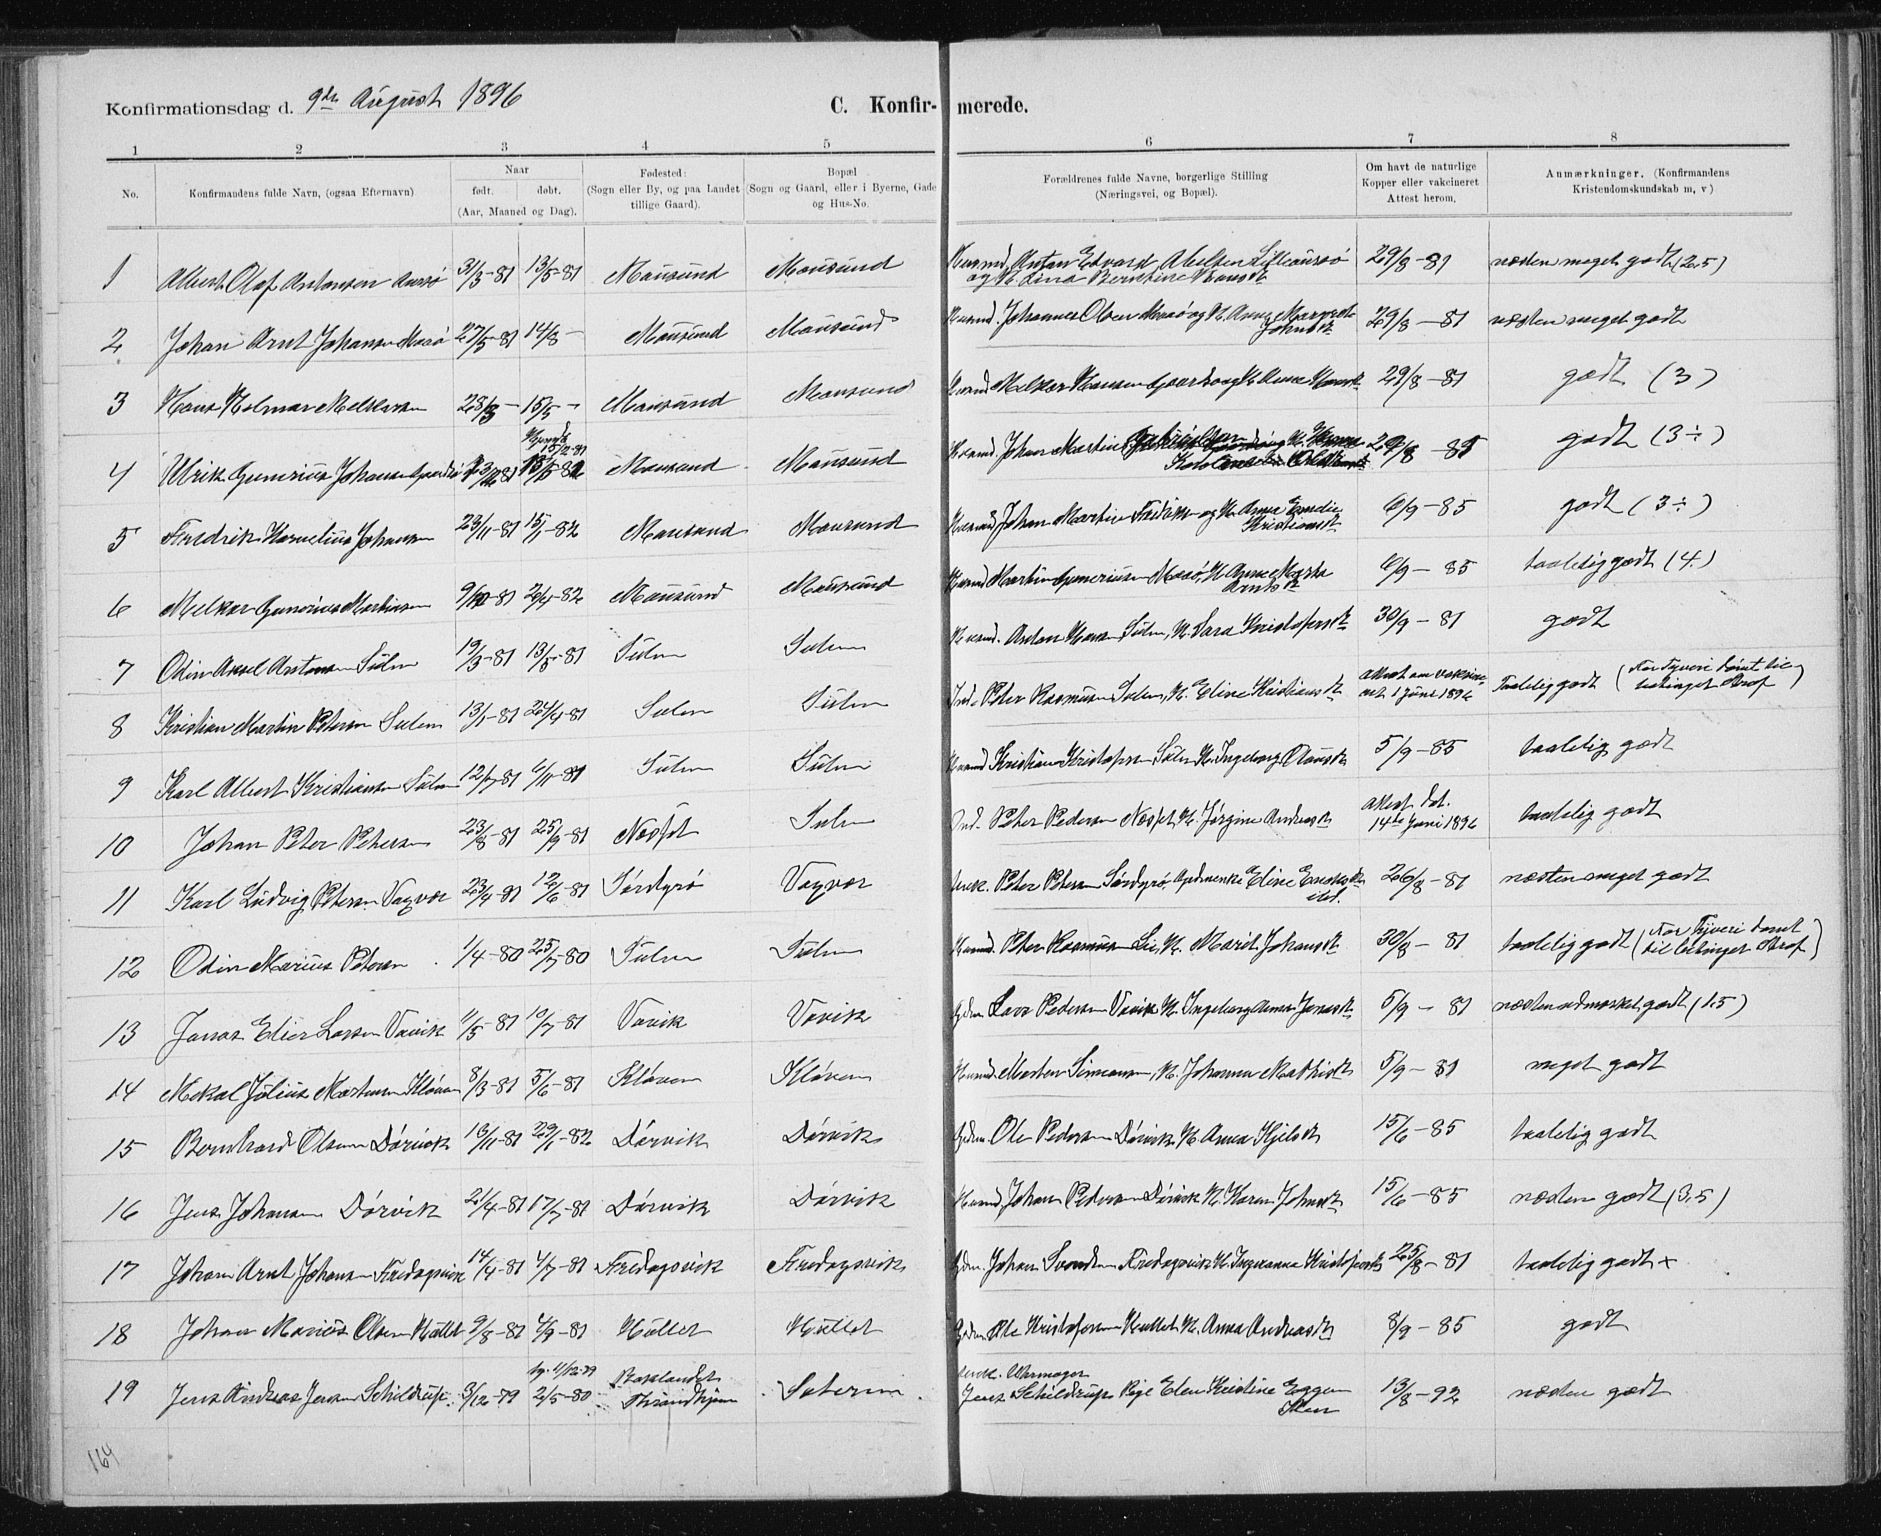 Konfirmationsdag d. 9de August 1896 C. Konfir- merede.
1 2 3 4 5 6 7 8
No. Konfirmandens fulde Navn, (ogsaa Efternavn) Naar født. døbt. (Aar, Maaned og Dag). Fødested: (Sogn eller By, og paa Landet tillige Gaard). Bopæl (Sogn og Gaard, eller i Byerne, Gade og Hus-No. Forældrenes fulde Navne, borgerlige Stilling (Næringsvei, og Bopæl). Om havt de naturlige Kopper eller vakcineret Attest herom. Anmærkninger. (Konfirmandens Kristendomskundskab m, v)
1 Albert Olaf Antonsen 31/3-81 13/5-81 Mausund Mausund Husmd. Anton Edvard 29/8-81 næsten meget godt (2.5)
2 Johan Arnt Johansen Masø 27/5-81 14/8- Mausund Mausund Husmd. Johannes Olsen Masø og H. Anna 29/8-81 næsten meget godt
3 Hans Hilmar Melkersen 23/3- 15/5- Mausund Mausund Husmd Melker Hansen 29/8-81 godt (3)
4 Ulrik Gunerius Johansen Mausund Mausund Husmd Johan Martin 29/8-85 godt (3÷)
5 Fredrik Kornelius Johansen 23/11-81 15/1-82 Mausund Mausund Husmd Johan Martin Fredriksen og H. Anna Emilie Kristiansdt 6/9-85 godt (3÷)
6 Melker Gunerius Martinsen 9/12-81 26/4-82 Mausund Mausund Husmd Martin Guneriusen Masø, H. Anna Marta Arntsdt 6/9-85 taalelig godt (4)
7 Odin Aksel Antonsen Sulen 19/3-81 13/5-81 Sulen Sulen Husmd. Anton Hansen Sulen, H. Sara Kristofersdt 30/9-81 godt
8 Kristian Martin Petersen Sulen 13/1-81 24/4-81 Sulen Sulen Ind. Peter Rasmussen Sulen, H. Eline Kristiansdt attest om vakcine- ret 1 Juni 1896 Taalelig godt (For Tyveri dømt til betinget Straf)
9 Karl Albert Kristiansen Sulen 12/7-81 6/11-81 Sulen Sulen Husmd Kristian Kristofersen Sulen H. Ingeborg Olausdt 5/9-85 taalelig godt
10 Johan Peter Petersen 23/8-81 25/9-81 Nesset Sulen Ind. Peter Pedersen Nesset, H. Jørgine Andreasdt attest dat. 14de Juni 1896 taalelig godt
11 Karl Ludvig Petersen Vagvær 23/4-81 12/6-81 Sørdyrø Vagvær Peter Petersen Sørdyrø, Eline 26/8-81 næsten meget godt
12 Odin Marius Petersen 1/4-80 25/7-80 Sulen Sulen Husmd. Peter Rasmussen H. Marit Johansdt 30/8-81 taalelig godt (For Tyveri dømt til betinget Straf)
13 Jonas Elier Larsen Vavik 1/5-81 10/7-81 Vavik Vavik Gdm. Lars Pedersen Vavik H. Ingeborg Anna Jonasdt 5/9-81 næsten udmærket godt (1.5)
14 Mekal Julius Mortensen Kløven 8/3-81 5/6-81 Kløven Kløven Husmd. Morten Simonsen, H. Johanna Mathisdt 5/9-81 meget godt
15 Bernhard Olsen Dørvik 13/11-81 29/1-82 Dørvik Dørvik Gdm. Ole Pedersen Dørvik H. Anna Kjelsdt 15/6-85 taalelig godt
16 Jens Johansen Dørvik 21/4-81 17/7-81 Dørvik Dørvik Husmd Johan Pedersen Dørvik H. Karen Johnsdt 15/6-85 næsten godt (3.5)
17 Johan Arnt Johansen Fredagsvik 14/4-81 4/7-81 Fredagsvik Fredagsvik Gdm. Johan Svendsen Fredagsvik H. Ingeranna Kristofersdt 25/8-81 taalelig godt +
18 Johan Marius Olsen Hallet 9/8-81 4/9-81 Hallet Hallet Gdm. Ole Kristofersen Hallet H. Anna Andreasdt 8/9-85 godt
19 Jens Andreas Jensen Schieldrup 3/12-79 2/5-80 Baklandet Throndhjem Urmager Jens Schieldrup Pige Elen Kristine Eggen 13/8-92 næsten godt
164